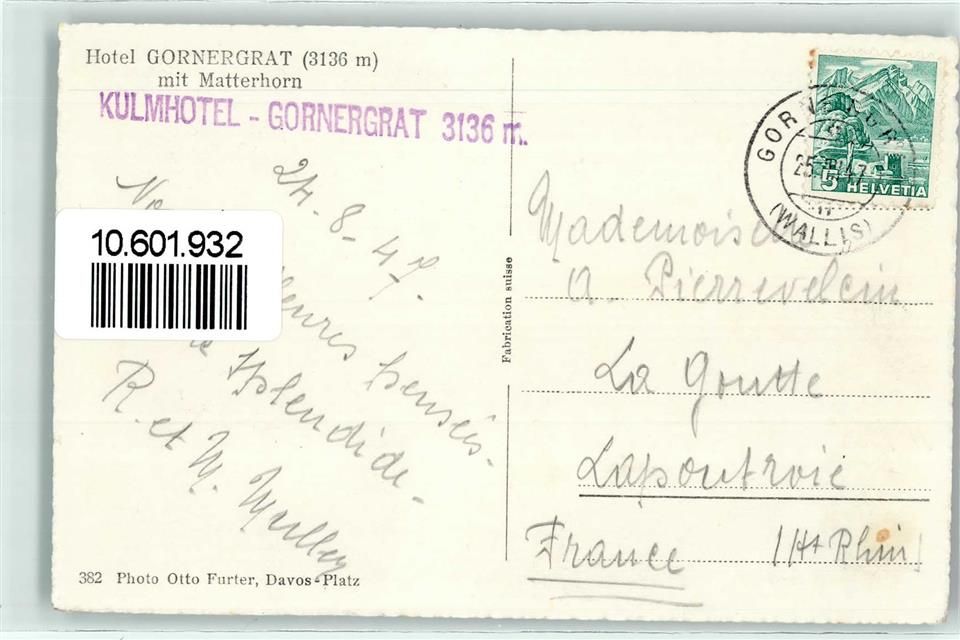 Hotel GORNERGRAT (3136 m)
mit Matterhorn
KULMHOTEL - GORNERGRAT 3136 m.
24-8-47.
10.601.932
pensées
splendide
R. et M. Muller
382 Photo Otto Furter, Davos-Platz
Fabrication suisse
GORN
25. 47
(WALLIS)
5 HELVETIA
Mademoise
A. Pierrevelcin
La Goutte
Lapoutroie
France (Ht Rhin)